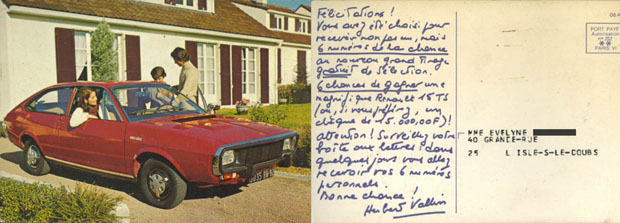 Félicitations !
Vous avez été choisi pour
recevoir non pas un, mais
6 numéros de la chance
au nouveau grand tirage
gratuit de Sélection.
6 chances de gagner une
magnifique Renault 15 TS
(ou, si vous préférez, un
chèque de 15.000,00F) !
attention ! Surveillez votre
boîte aux lettres : dans
quelques jours vous allez
recevoir vos 6 numéros
personnels.
Bonne chance !
Hubert Vallin
PORT PAYÉ
Autorisation
PARIS VI
MME EVELYNE
40 GRANDE-RUE
25 L ISLE-S-LE-DOUBS